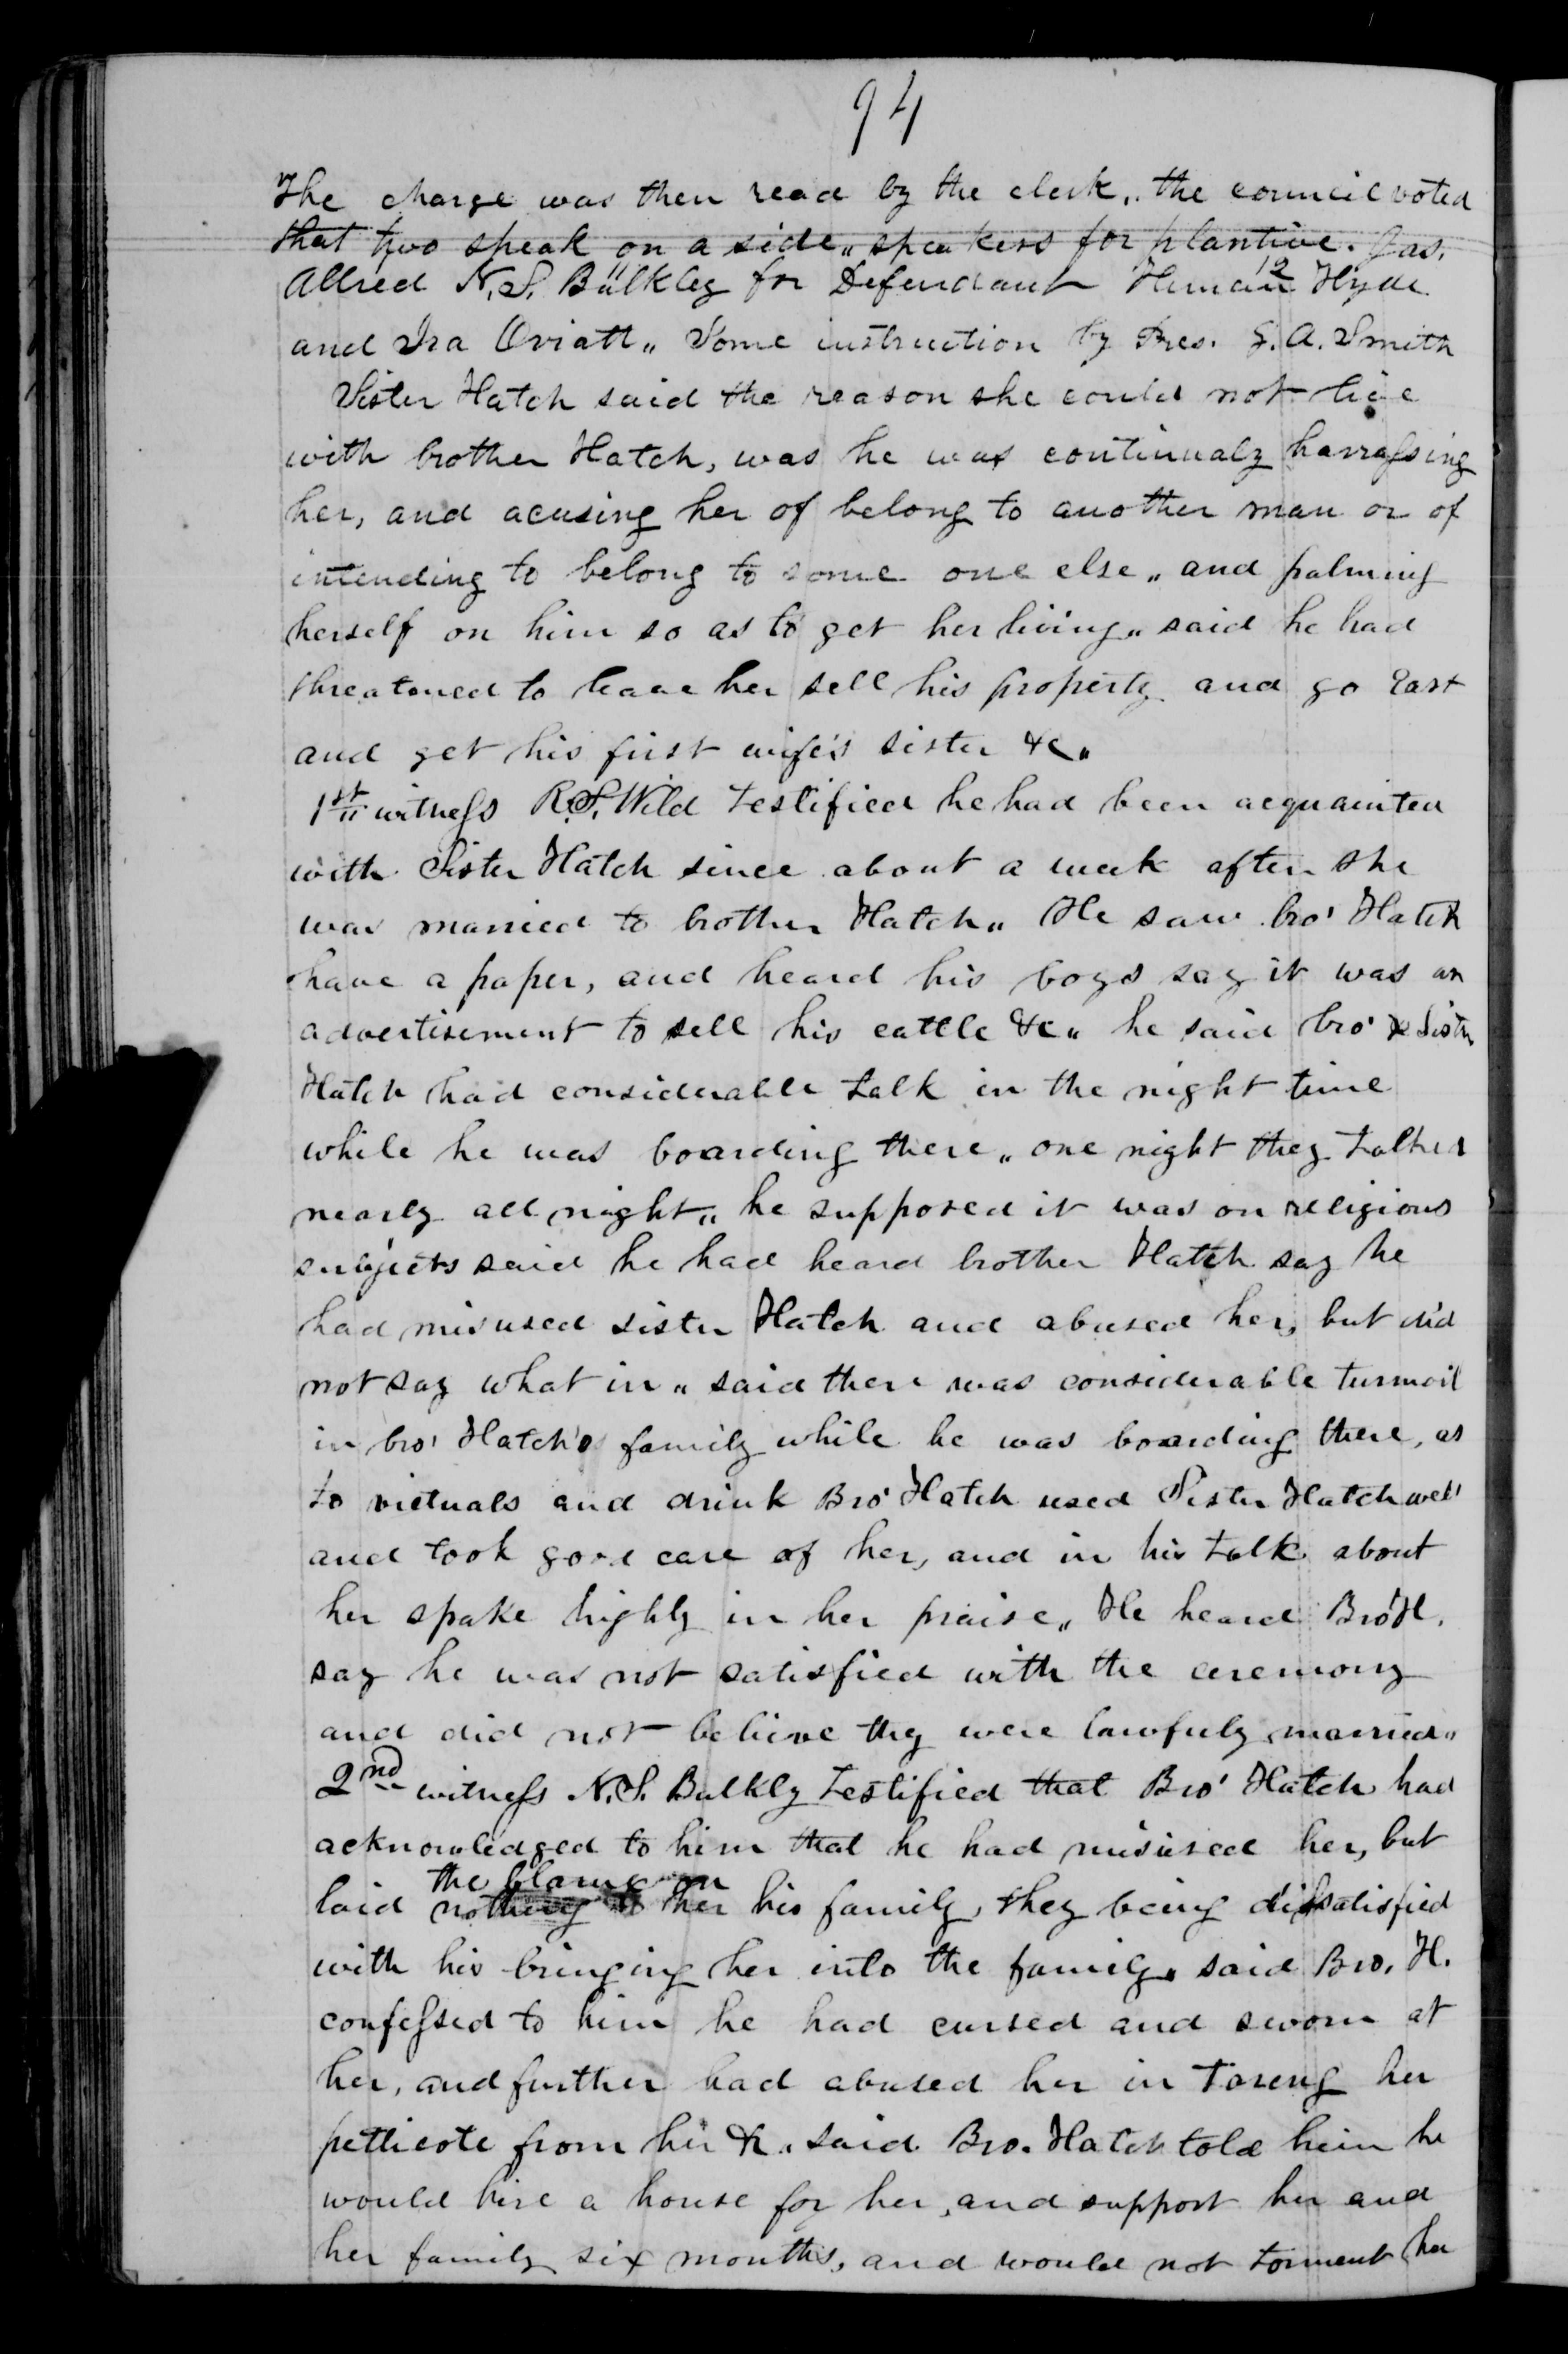 94
The charge was then read by the clerk,, the council voted
that two speak on a side,, speakers for plantive. Jas.
Allred N. S. Bulkley for Defendant Heman Hyde
11 12
and Ira Oviatt,, Some instruction by Pres. G. A. Smith
Sister Hatch said the reason she could not live
with brother Hatch, was he was continualy harrassing
her, and acusing her of belong to another man or of
intending to belong to some one else,, and palming
herself on him so as to get her living,, said he had
threatoned to leave her sell his property and go East
and get his first wife's sister &c,,
1st,, witness R. S. Wild testified he had been acquainted
with Sister Hatch since about a week after she
was married to brother Hatch,, He saw bro' Hatch
have a paper, and heard his boys say it was an
advertisement to sell his cattle &c,, he said bro' & Sister
Hatch had considerable talk in the night time
while he was boarding there,, one night they talked
nearly all night,, he supposed it was on religious
subjects said he had heard brother Hatch say he
had misused sister Hatch and abused her, but did
not say what in,, said there was considerable turmoil
in bro' Hatch's family while he was boarding there, as
to victuals and drink Bro' Hatch used Sister Hatch well
and took good care of her, and in his talk about
her spake highly in her praise,, He heard Bro' H.
say he was not satisfied with the ceremony
and did not believe they were lawfuly married,,
2nd witness N. S. Bulkly testified that Bro' Hatch had
acknowledged to him that he had misused her, but
the blame on
laid nothing to her his family, they being dissatisfied
with his bringing her into the family,, said Bro. H.
confessed to him he had cursed and sworn at
her, and further had abused her in toreng her
petticote from her &c,, said Bro. Hatch told him he
would hire a house for her, and support her and
her family six months, and would not torment her